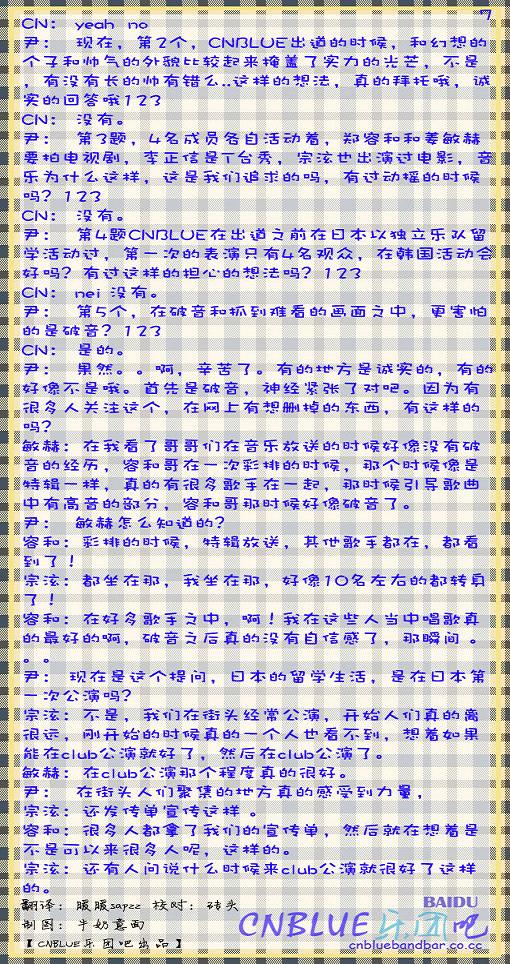 7
CN： yeah no
尹： 现在，第2个，CNBLUE出道的时候，和幻想的
个子和帅气的外貌比较起来掩盖了实力的光芒，不是
，有没有长的帅有错么..这样的想法，真的拜托哦，诚
实的回答哦123
CN： 没有。
尹： 第3题，4名成员各自活动着，郑容和和姜敏赫
要拍电视剧，李正信是T台秀，宗泫也出演过电影，音
乐为什么这样，这是我们追求的吗，有过动摇的时候
吗？123
CN： 没有。
尹： 第4题CNBLUE在出道之前在日本以独立乐队留
学活动过，第一次的表演只有4名观众，在韩国活动会
好吗？有过这样的担心的想法吗？123
CN： nei 没有。
尹： 第5个，在破音和抓到难看的画面之中，更害怕
的是破音？123
CN： 是的。
尹： 果然。。啊，辛苦了。有的地方是诚实的，有的
好像不是哦。首先是破音，神经紧张了对吧。因为有
很多人关注这个，在网上有想删掉的东西，有这样的
吗？
敏赫：在我看了哥哥们在音乐放送的时候好像没有破
音的经历，容和哥在一次彩排的时候，那个时候像是
特辑一样，真的有很多歌手在一起，那时候引导歌曲
中有高音的部分，容和哥那时候好像破音了。
尹： 敏赫怎么知道的？
容和：彩排的时候，特辑放送，其他歌手都在，都看
到了！
宗泫：都坐在那，我坐在那，好像10名左右的都转真
了！
容和：在好多歌手之中，啊！我在这些人当中唱歌真
的最好的啊，破音之后真的没有自信感了，那瞬间 。
。。
尹： 现在是这个提问，日本的留学生活，是在日本第
一次公演吗？
宗泫：不是，我们在街头经常公演，开始人们真的离
很远，刚开始的时候真的一个人也看不到，想着如果
能在club公演就好了，然后在club公演了。
敏赫：在club公演那个程度真的很好。
尹： 在街头人们聚集的地方真的感受到力量，
宗泫：还发传单宣传这样 。
容和：很多人都拿了我们的宣传单，然后就在想着是
不是可以来很多人呢，这样的。
宗泫：还有人问说什么时候来club公演就很好了这样
的。
翻译：暖暖sapzz 校对：砖头
制图：牛奶意面
【CNBLUE乐团吧出品】
BAIDU
CNBLUE乐团吧
cnbluebandbar.co.cc